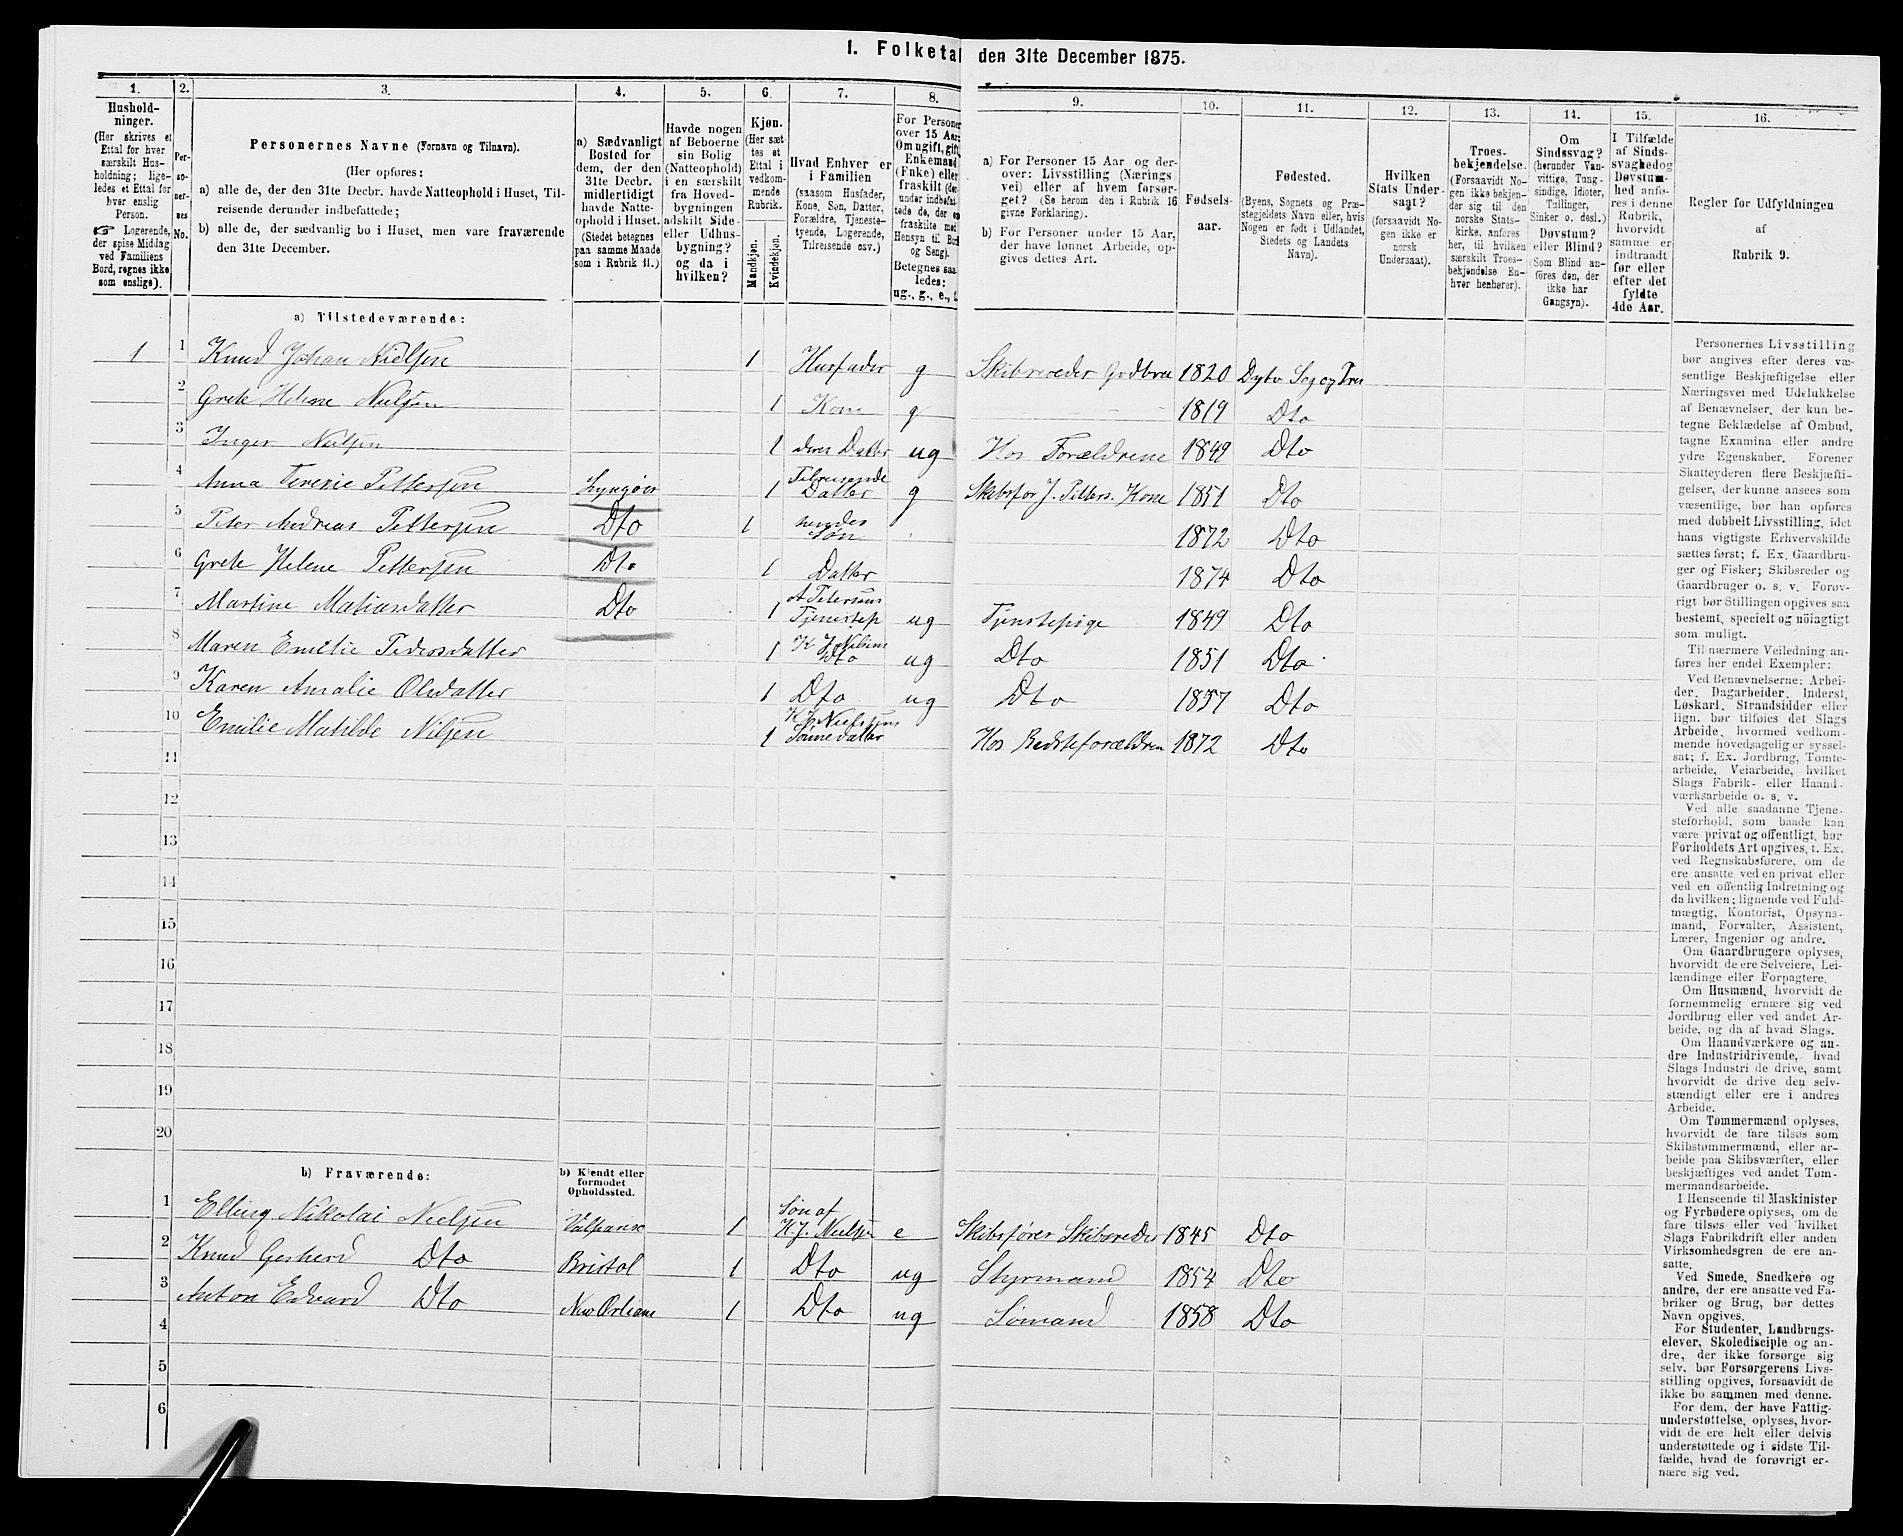 1. Folketal den 31te December 1875.
1. 2. 3. 4. 5. 6. 7. 8. 9. 10. 11. 12. 13. 14. 15. 16.
Hushold-
ninger.
(Her skrives et
Ettal for hver
særskilt Hus-
holdning; lige-
ledes et Ettal for
hver enslig
Person.
☞ Logerende,
der spise Middag
ved Familiens
Bord, regnes ikke
som enslige).
Per-
so-
ner-
nes
No.
Personernes Navne (Fornavn og Tilnavn).
(Her opføres:
a) alle de, der den 31te Decbr. havde Natteophold i Huset, Til-
reisende derunder indbefattede;
b) alle de, der sædvanlig bo i Huset, men vare fraværende
den 31te December.
a) Sædvanligt
Bosted for
dem, der den
31te Decbr.
midlertidigt
havde Natte-
ophold i Huset.
(Stedet betegnes
paa samme Maade
som i Rubrik 11.)
Havde nogen
af Beboerne
sin Bolig
(Natteophold)
i en særskilt
fra Hoved-
bygningen
adskilt Side-
eller Udhus-
bygning?
og da i
hvilken?
Kjøn.
(Her sæt-
tes et
Ettal i
vedkom-
mende
Rubrik.
Mandkjøn.
Kvindekjøn.
Hvad Enhver er
i Familien
(saasom Husfader,
Kone, Søn, Datter,
Forældre, Tjeneste-
tyende, Logerende,
Tilreisende osv.)
For Personer
over 15 Aar:
Om ugift, gift,
Enkemand
(Enke) eller
fraskilt (der-
under indbefat-
tede de, der ere
fraskilte med
Hensyn til Bord
og Seng).
Betegnes saa-
ledes:
ug., g., e., f.
a) For Personer 15 Aar og der-
over: Livsstilling (Nærings-
vei) eller af hvem forsør-
get? (Se herom den i Rubrik 16
givne Forklaring).
b) For Personer under 15 Aar,
der have lønnet Arbeide, op-
gives dettes Art.
Fødsels-
aar.
Fødested.
(Byens, Sognets og Præ-
stegjeldets Navn eller, hvis
Nogen er født i Udlandet,
Stedets og Landets
Navn).
Hvilken
Stats Under-
saat?
(forsaavidt No-
gen ikke er
norsk
Undersaat).
Troes-
bekjendelse.
(Forsaavidt No-
gen ikke bekjen-
der sig til den
norske Stats-
kirke, anføres
her, til hvilken
særskilt Troes-
bekjendelse En-
hver henhører).
Om
Sindssvag?
(herunder Van-
vittige, Tung-
sindige, Idioter,
Tullinger,
Sinker o. desl.)
Døvstum?
eller Blind?
(Som Blind an-
føres den, der
ikke har
Gangsyn).
I Tilfælde
af Sinds-
svaghed og
Døvstum-
hed anfø-
res i denne
Rubrik,
hvorvidt
samme er
indtraadt
før eller
efter det
fyldte
4de Aar.
Regler for Udfyldningen
af
Rubrik 9.
a) Tilstedeværende:
1 1 Knud Johan Nielsen 1 Husfader g Skibsreder Gndbru 1820 Dybv Sog og Præs
2 Grete Helene Nielsen 1 Kone g 1819 Dto
3 Inger Nielsen 1 deres Datter ug Hos Forældrene 1849 Dto
4 Anna Tererie Pettersen Lyngøer 1 Tilreisende Datter g Skibsfør J. Petters. Kone 1851 Dto
5 Peter Andreas Pettersen Dto 1 hendes Søn 1872 Dto
6 Grete Helene Pettersen Dto 1 Datter 1874 Dto
7 Martine Matiasdatter Dto 1 A Petersens Tjenistep ug Tjenstepige 1849 Dto
8 Maren Emilie Pedersdatter 1 K J Nielsens Dto ug Dto 1851 Dto
9 Karen Amalie Olsdatter 1 Dto ug Dto 1857 Dto
10 Emilie Matilde Nilsen 1 K J Nielsens Sønnedatter Hos Bedsteforældren 1872 Dto
11
12
13
14
15
16
17
18
19
20
b) Fraværende:
b) Kjendt eller
formodet
Opholdssted.
1 Elling Nikolai Nielsen Valparise 1 Søn af K. J. Nielsen e Skibsfører Skibsreder 1845 Dto
2 Knud Gerherd Dto Bristol 1 Dto ug Styrmand 1854 Dto
3 Anton Edvard Dto New Orlians 1 Dto ug Sømand 1858 Dto
4
5
6
Personernes Livsstilling
bør angives efter deres væ-
sentlige Beskjæftigelse eller
Næringsvei med Udelukkelse
af Benævnelser, der kun be-
tegne Beklædelse af Ombud,
tagne Examina eller andre
ydre Egenskaber. Forener
Skatteyderen flere Beskjæfti-
gelser, der kunne ansees som
væsentlige, bør han opføres
med dobbelt Livsstilling, idet
hans vigtigste Erhvervskilde
sættes først; f. Ex. Gaardbru-
ger og Fisker; Skibsreder og
Gaardbruger o. s. v. Forøv-
rigt bør Stillingen opgives saa
bestemt, specielt og nöiagtigt
som muligt.
Til nærmere Veiledning an-
føres her endel Exempler:
Ved Benævnelserne: Arbei-
der, Dagarbeider, Inderst,
Løskarl, Strandsidder eller
lign. bør tilføies det Slags
Arbeide, hvormed vedkom-
mende hovedsagelig er syssel-
sat; f. Ex. Jordbrug, Tomte-
arbeide, Veiarbeide, hvilket
Slags Fabrik- eller Haand-
værksarbeide o. s. v.
Ved alle saadanne Tjene-
steforhold, som baade kan
være privat og offentligt, bør
Forholdets Art opgives, f. Ex.
ved Regnskabsførere, om de
ere ansatte ved en privat eller
ved en offentlig Indretning og
da hvilken; lignende ved Fuld-
mægtig, Kontorist, Opsyns-
mand, Forvalter, Assistent,
Lærer, Ingeniør og andre.
Om Gaardbrugere oplyses,
hvorvidt de ere Selveiere, Lei-
lændinge eller Forpagtere.
Om Husmænd, hvorvidt de
fornemmelig ernære sig ved
Jordbrug eller ved andet Ar-
beide, og da af hvad Slags.
Om Haandværkere og an-
dre Industridrivende, hvad
Slags Industri de drive, samt
hvorvidt de drive den selv-
stændigt eller ere i andres
Arbeide.
Om Tømmermænd oplyses,
hvorvidt de fare tilsøs som
Skibstømmermænd, eller ar-
beide paa Skibsværfter, eller
beskjæftiges ved andet Tøm-
mermandsarbeide.
I Henseende til Maskinister
og Fyrbødere oplyses, om de
fare tilsøs eller ved hvilket
Slags Fabrikdrift eller anden
Virksomhedsgren de ere an-
satte.
Ved Smede, Snedkere og
andre, der ere ansatte ved Fa-
briker og Brug, bør dettes
Navn opgives.
For Studenter, Landbrugs-
elever, Skoledisciple og an-
dre, der ikke forsørge sig
selv, bør Forsørgerens Livs-
stilling opgives, forsaavidt de
ikke bo sammen med denne.
For dem, der have Fattig-
understøttelse, oplyses, hvor-
vidt de ere helt eller delvis
understøttede og i sidste Til-
fælde, hvad de forøvrigt er-
nære sig ved.